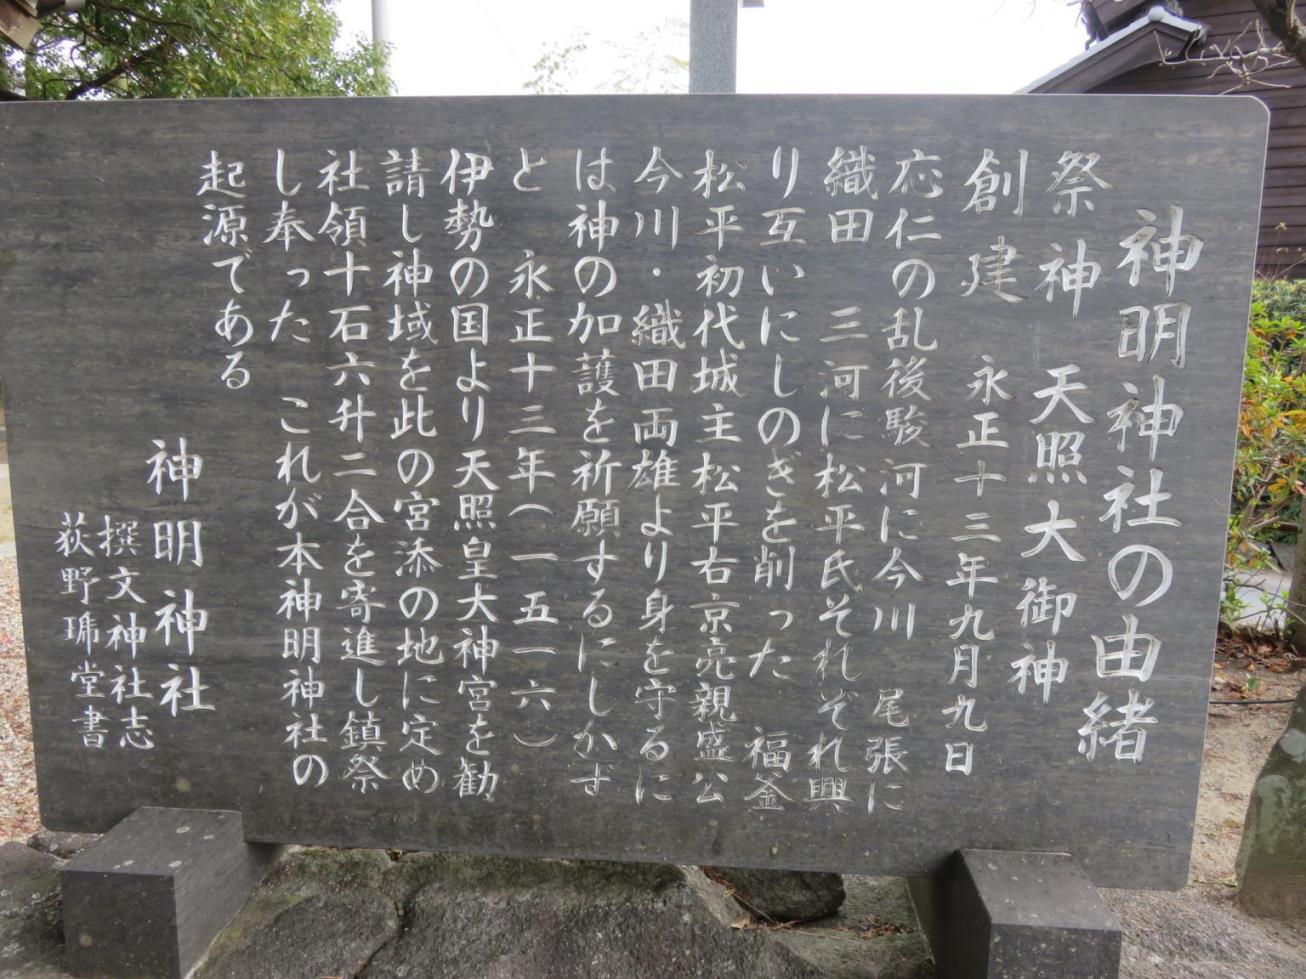 神明神社の由緒
祭神 天照大御神
創建 永正十三年九月九日
応仁の乱後駿河に今川 尾張に
織田 三河に松平氏それぞれ興
り互いにしのぎを削った 福釜
松平初代城主松平右京亮親盛公
今川・織田両雄より身を守るに
は神の加護を祈願するにしかず
と 永正十三年(一五一六)
伊勢の国より天照皇大神宮を勧
請し神域を此の宮添の地に定め
社領十石六升二合を寄進し鎮祭
し奉った これが本神明神社の
起源である
神明神社
撰文神社志
荻野珶堂書